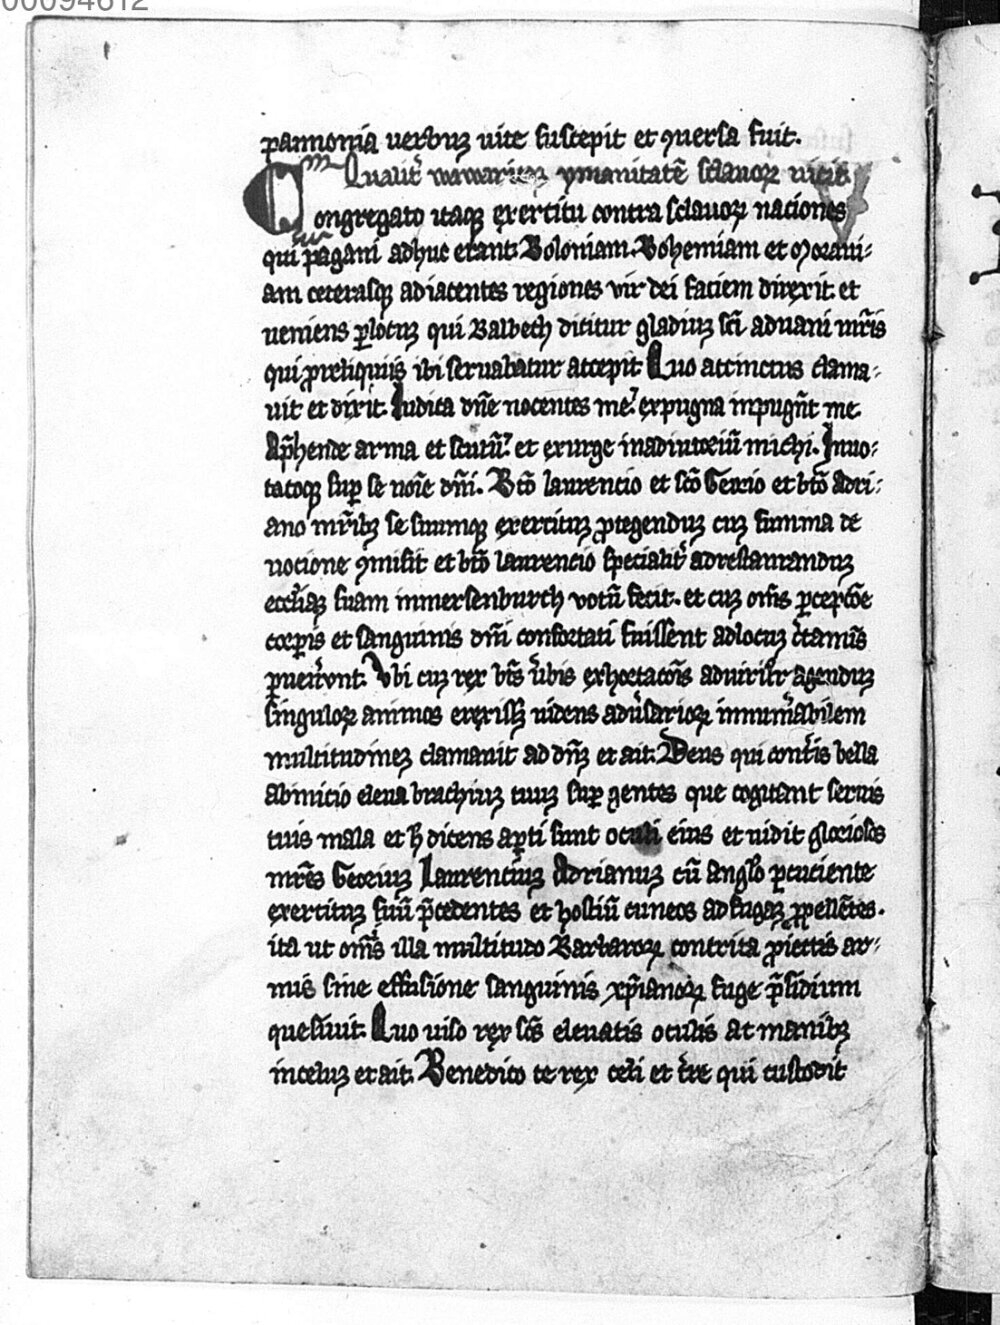 00094612
pannonia uerbuʒ uite suscepit et ꝯuersa fuit.
Qualit᷑ ymanitatē sclauoꝝ uicit
Congregato itaqꝫ exercitu contra sclauoꝝ naciones
qui pagani adhuc erant. Boloniam. Bohemiam et Moraui⸗
am ceterasqꝫ adiacentes regiones vir dei faciem direxit. et
ueniens ꝑ locuʒ qui Balbech dicitur gladiuʒ sc̄i adriani mr̄is
qui ꝓ reliquiis ibi seruabatur accepit Quo accinctus clama⸗
uit et dixit. Iudica dn̄e nocentes me. expugna inpugn̄t me.
Ap̄hende arma et scutū. et exurge in adiutoriū michi. Inuo⸗
catoqꝫ suꝑ se noīe dn̄i. Btō laurencio et sc̄o Georio et btō Adri⸗
ano mr̄ibʒ se suumqꝫ exercituʒ ꝓtegenduʒ cuʒ summa de
uocione ꝯmisit et btō laurencio specialit᷑ ad restaurandaʒ
eccl̄iaʒ suam in mersenburch votū fecit. et cuʒ om̄s ꝑcepcōe
corꝑis et sanguinis dn̄i confortati fuissent ad locuʒ c᷑taminis
ꝑuen᷑unt. Vbi cuʒ rex bt̄s u᷑bis exhortacōis ad uirilit᷑ agenduʒ
singuloꝝ animos erexissʒ uidens adu᷑sarioꝝ innum᷑abilem
multitudineʒ clamauit ad dn̄ʒ et ait. Deus qui conteris bella
ab inicio eleua brachiuʒ tuuʒ suꝑ gentes que cogitant seruis
tuis mala et h̄ dicens aꝑti sunt oculi eius et uidit gloriosos
mr̄es Georiuʒ Laurenciuʒ Adrianuʒ cū anglo ꝑcuciente
exercituʒ suū p̄cedentes et hostiū cuneos ad fugaʒ ꝓpellētes.
ita ut om̄s illa multitudo Barbaroꝝ contrita ꝓiectis ar⸗
mis sine effusione sanguinis xp̄ianoꝝ fuge p̄sidium
quesiuit. Quo uiso rex sc̄s eleuatis oculis ac manibʒ
in celuʒ et ait. Benedico te rex celi et t᷑re qui custodit